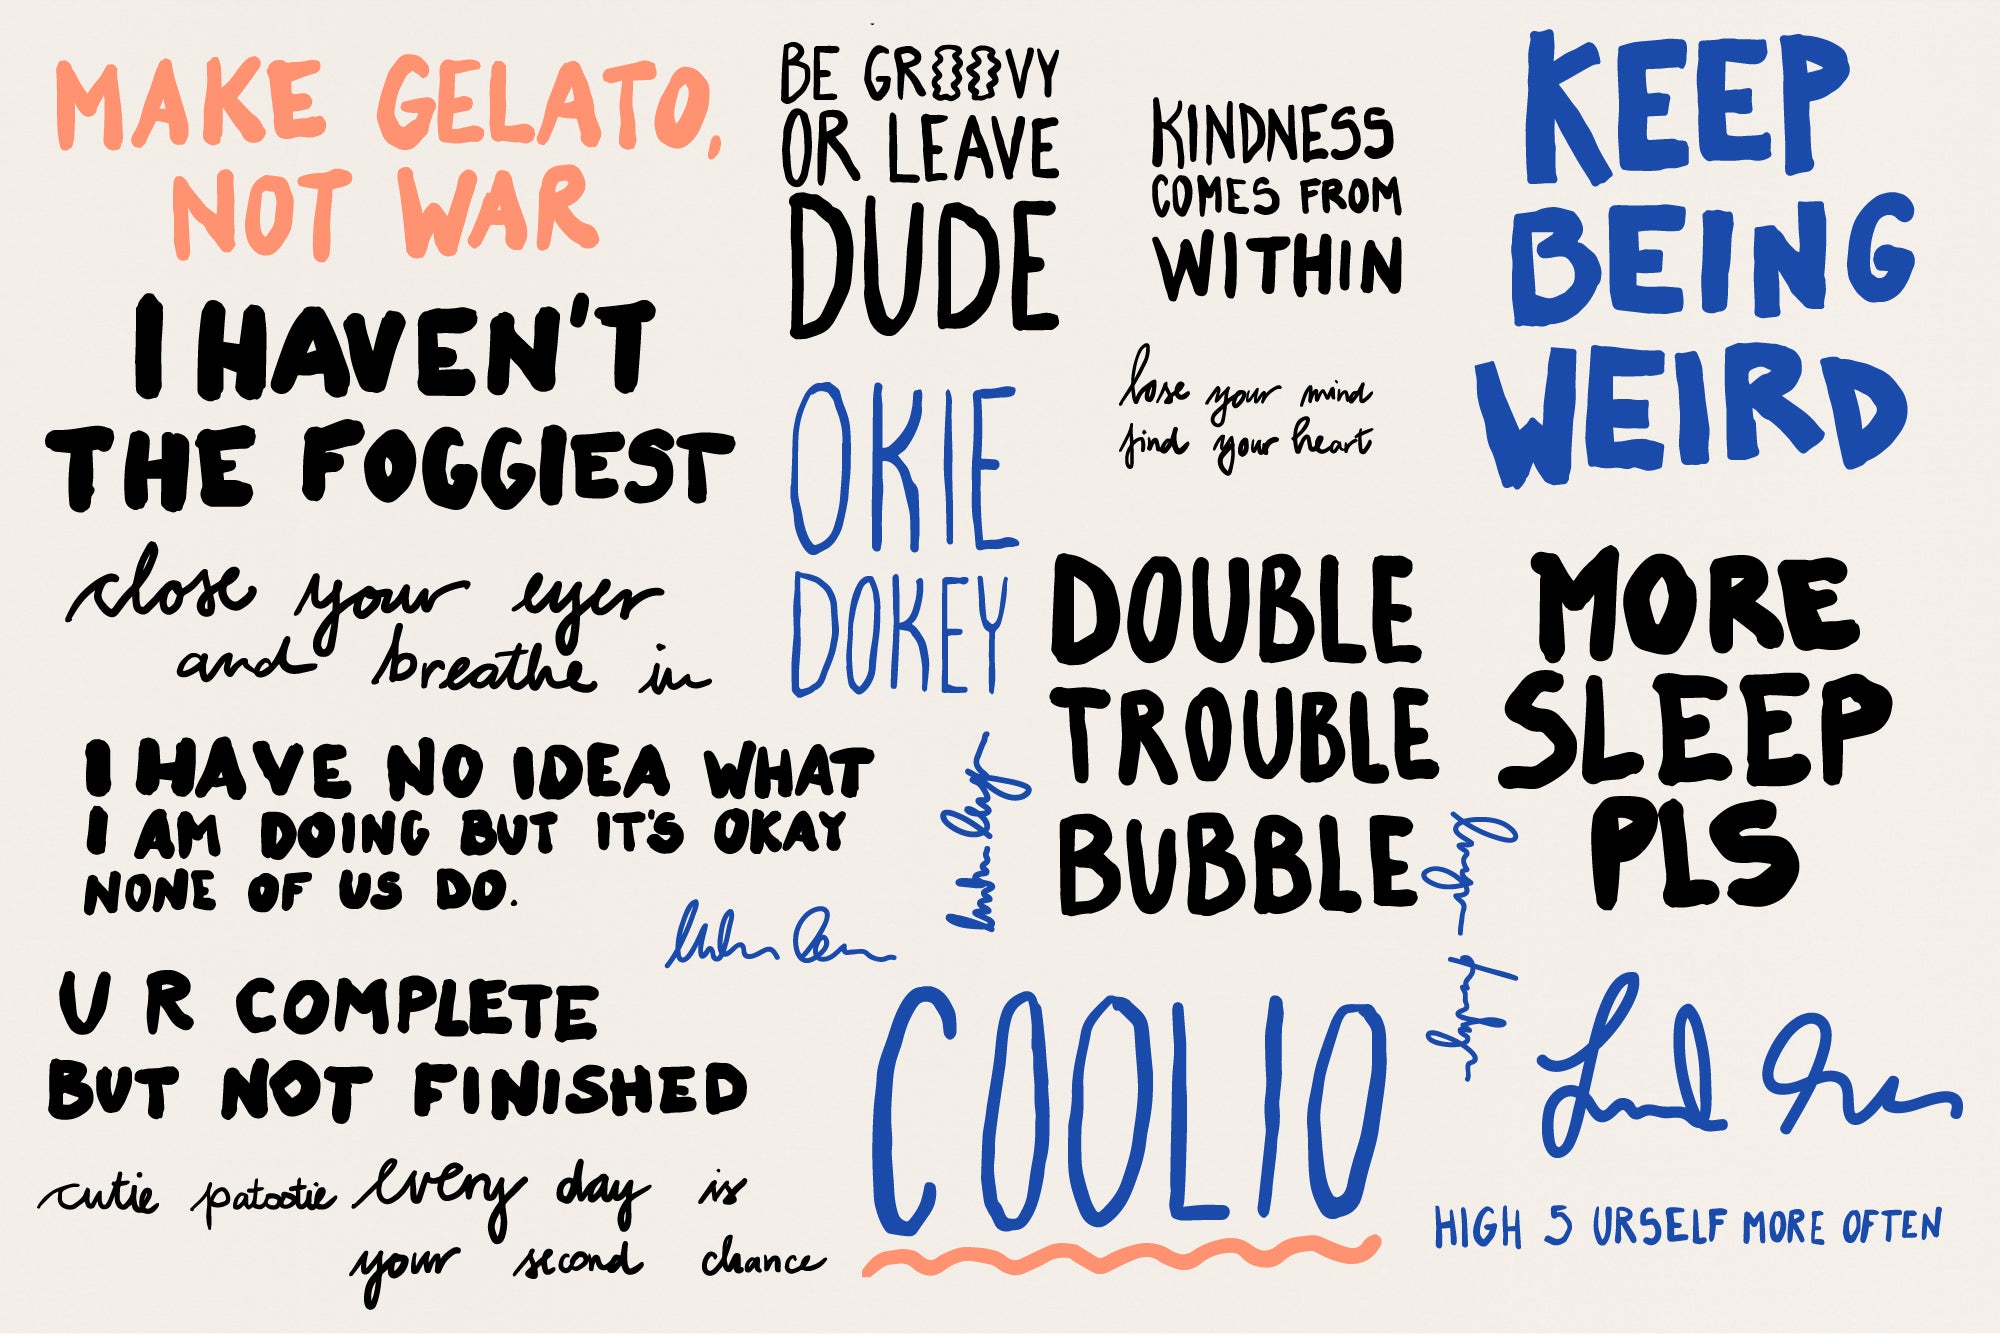 MAKE GELATO,
NOT WAR
I HAVEN'T
THE FOGGIEST
close your eyes
and breathe in
I HAVE NO IDEA WHAT
I AM DOING BUT IT'S OKAY
NONE OF US DO.
U R COMPLETE
BUT NOT FINISHED
cutie patootie
every day is
your second chance
BE GROOVY
OR LEAVE
DUDE
OKIE
DOKEY
KINDNESS
COMES FROM
WITHIN
lose your mind
find your heart
DOUBLE
TROUBLE
BUBBLE
COOLIO
KEEP
BEING
WEIRD
MORE
SLEEP
PLS
HIGH 5 URSELF MORE OFTEN